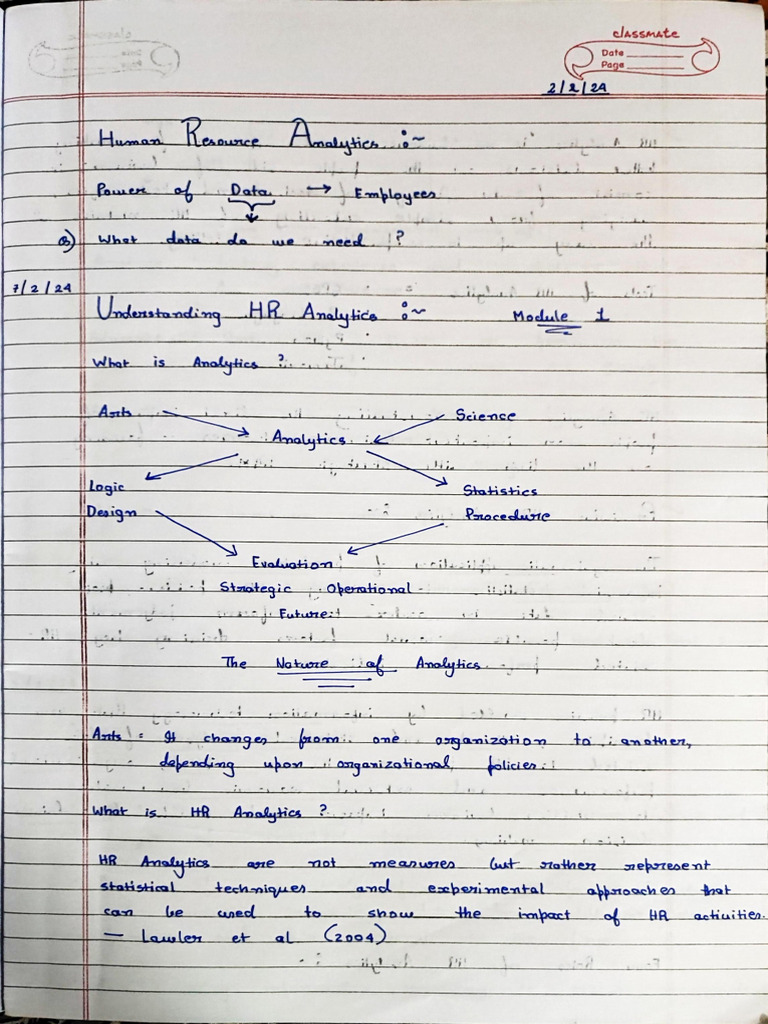 classmate
Date
Page
2/2/24
Human Resource Analytics :~
Power of Data → Employees
Q) What data do we need ?
7/2/24
Understanding HR Analytics :~ Module 1
What is Analytics ?
Arts Science
Analytics
Logic Statistics
Design Procedure
Evaluation
Strategic Operational
Future
The Nature of Analytics
Arts = It changes from one organization to another,
depending upon organizational policies.
What is HR Analytics ?
HR Analytics are not measures but rather represent
statistical techniques and experimental approaches that
can be used to show the impact of HR activities.
— Lawler et al (2004)